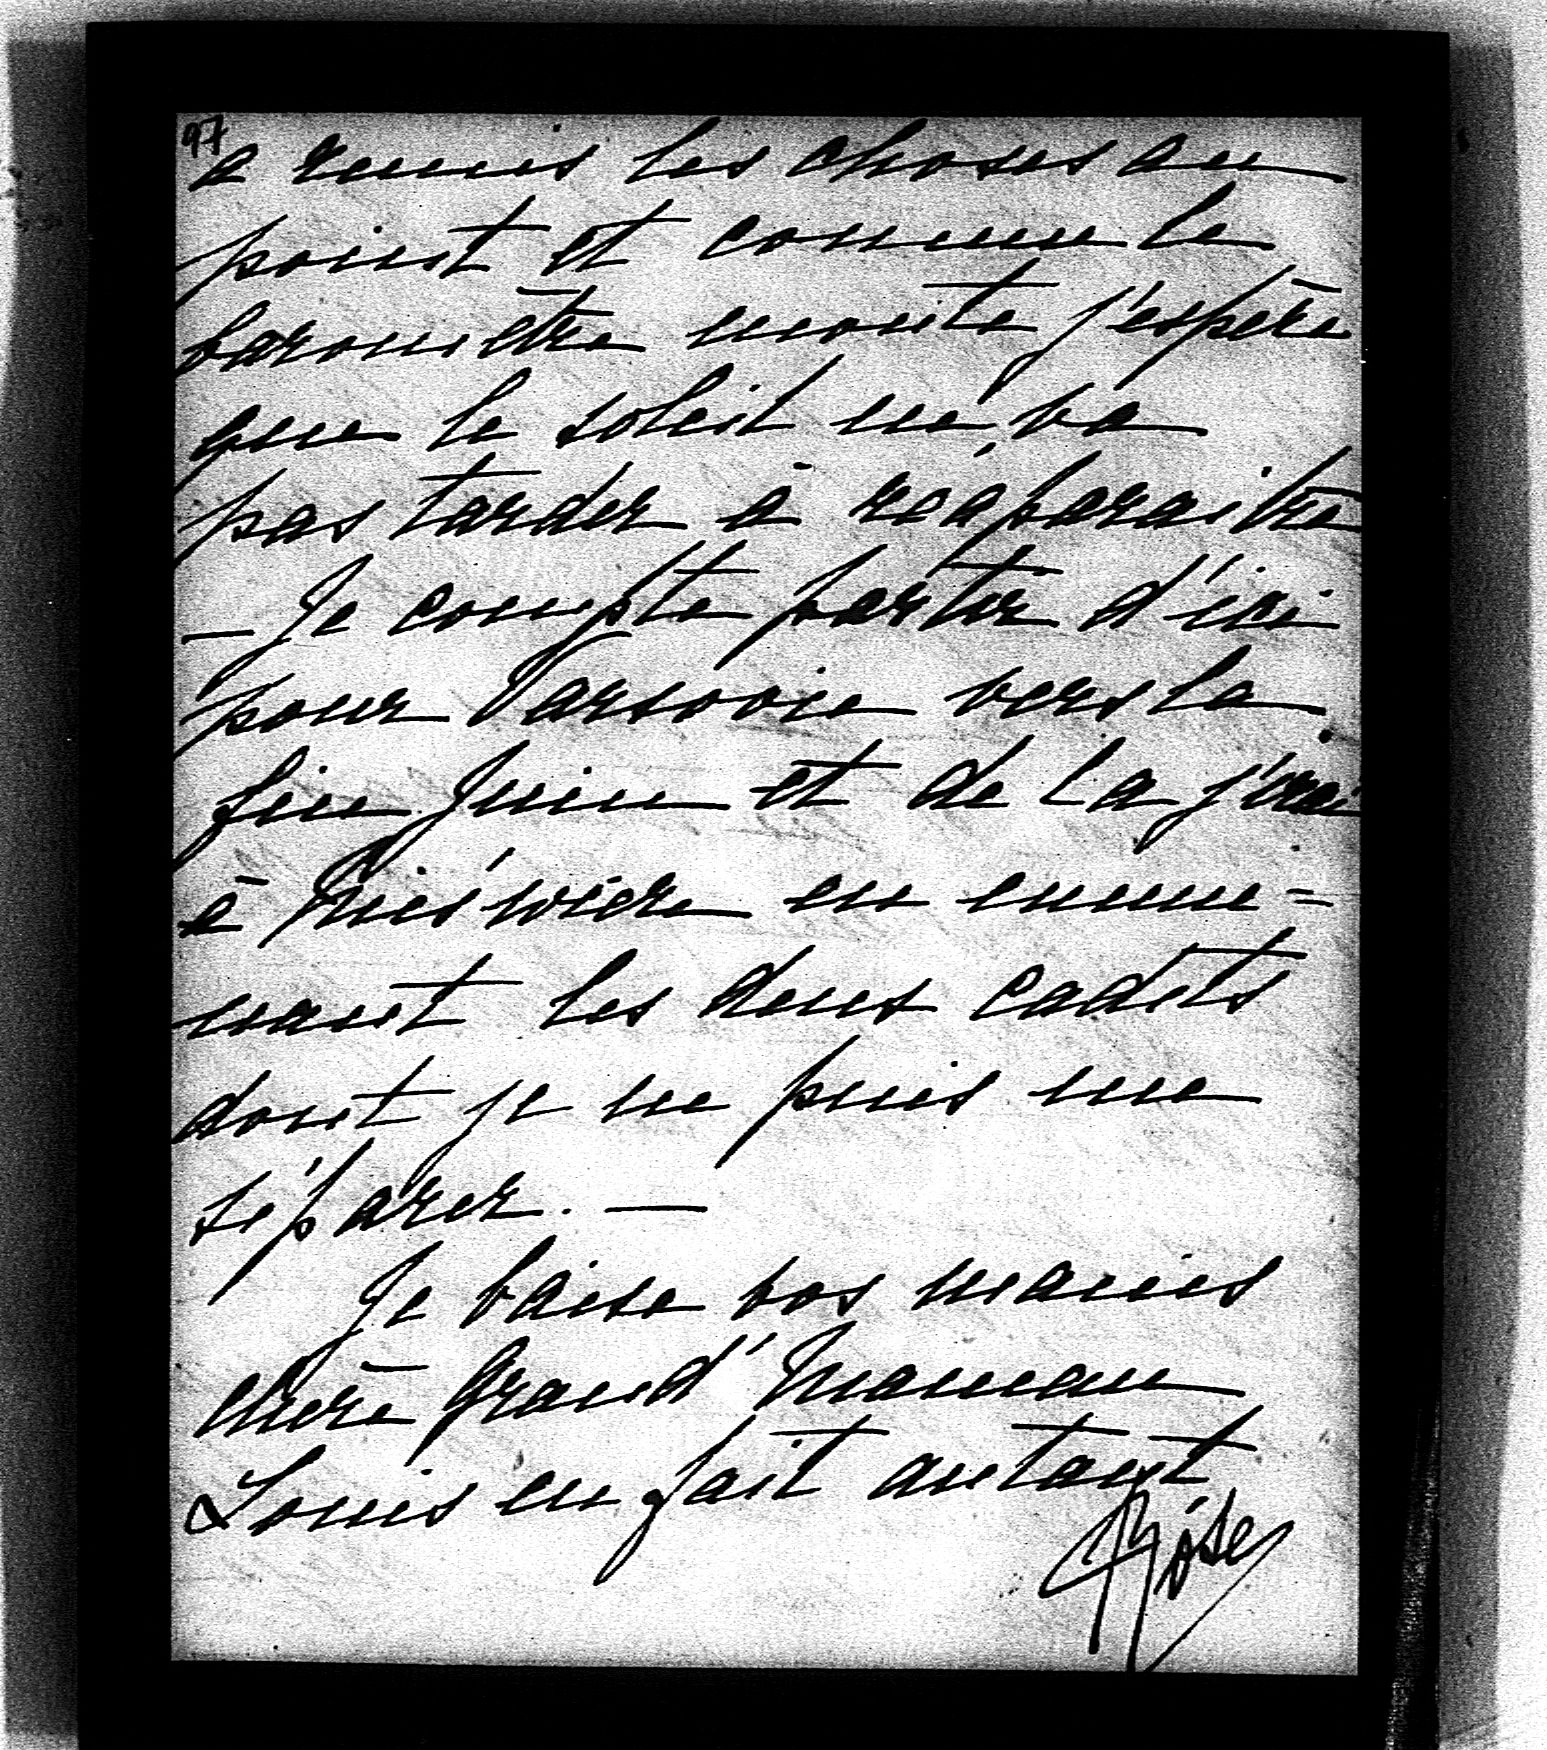 97
a remis les choses au
point et comme le
baromètre monte j'espère
que le soleil ne va
pas tarder à réaparaitre
— Je compte partir d'ici
pour Varsovie vers la
fin Juin et de la j'irai
à Nieświere en emme=
nant les deux cadets
dont je ne puis me
séparer. —
Je baise vos mains
chère Grand'Maman
Louis en fait autant
Róse